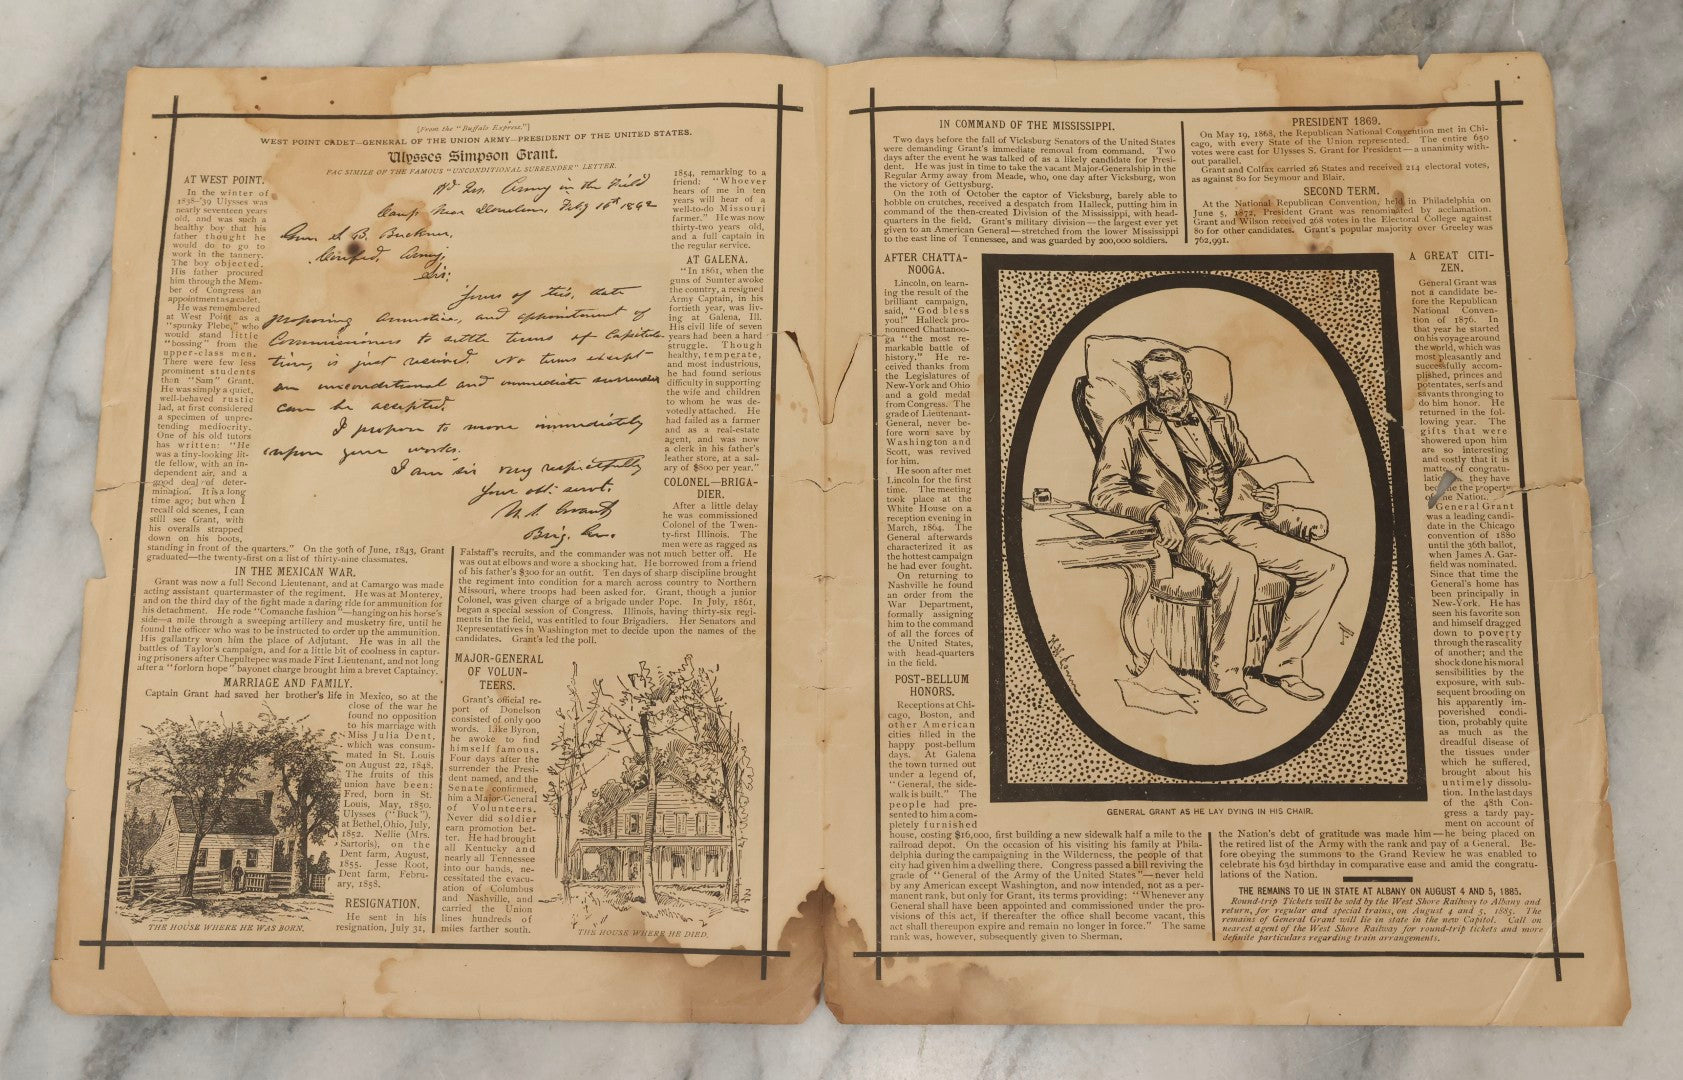 [From the "Buffalo Express."]
WEST POINT CADET—GENERAL OF THE UNION ARMY—PRESIDENT OF THE UNITED STATES.
Ulysses Simpson Grant.
FAC SIMILE OF THE FAMOUS "UNCONDITIONAL SURRENDER" LETTER.
AT WEST POINT.
In the winter of
1838-'39 Ulysses was
nearly seventeen years
old, and was such a
healthy boy that his
father thought he
would do to go to
work in the tannery.
The boy objected.
His father procured
him through the Mem-
ber of Congress an
appointment as a cadet.
He was remembered
at West Point as a
"spunky Plebe," who
would stand little
"bossing" from the
upper-class men.
There were few less
prominent students
than "Sam" Grant.
He was simply a quiet,
well-behaved rustic
lad, at first considered
a specimen of unpre-
tending mediocrity.
One of his old tutors
has written: "He
was a tiny-looking lit-
tle fellow, with an in-
dependent air, and a
good deal of deter-
mination. It is a long
time ago; but when I
recall old scenes, I can
still see Grant, with
his overalls strapped
down on his boots,
standing in front of the quarters." On the 30th of June, 1843, Grant
graduated—the twenty-first on a list of thirty-nine classmates.
Hd Qrs. Army in the Field
Camp Near Donelson, Feby 16th 1862
Gen. S. B. Buckner,
Confed. Army,
Sir:
Yours of this date
proposing Armistice, and appointment of
Commissioners to settle terms of Capitula-
tion, is just received. No terms except
an unconditional and immediate surrender
can be accepted.
I propose to move immediately
upon your works.
I am sir very respectfully
Your obt. servt.
U. S. Grant
Brig. Gen.
IN THE MEXICAN WAR.
Grant was now a full Second Lieutenant, and at Camargo was made
acting assistant quartermaster of the regiment. He was at Monterey,
and on the third day of the fight made a daring ride for ammunition for
his detachment. He rode "Comanche fashion"—hanging on his horse's
side—a mile through a sweeping artillery and musketry fire, until he
found the officer who was to be instructed to order up the ammunition.
His gallantry won him the place of Adjutant. He was in all the
battles of Taylor's campaign, and for a little bit of coolness in captur-
ing prisoners after Chepultepec was made First Lieutenant, and not long
after a "forlorn hope" bayonet charge brought him a brevet Captaincy.
MARRIAGE AND FAMILY.
Captain Grant had saved her brother's life in Mexico, so at the
close of the war he
found no opposition
to his marriage with
Miss Julia Dent,
which was consum-
mated in St. Louis
on August 22, 1848.
The fruits of this
union have been:
Fred, born in St.
Louis, May, 1850.
Ulysses ("Buck"),
at Bethel, Ohio, July,
1852. Nellie (Mrs.
Sartoris), on the
Dent farm, August,
1855. Jesse Root,
Dent farm, Febru-
ary, 1858.
RESIGNATION.
He sent in his
resignation, July 31,
THE HOUSE WHERE HE WAS BORN.
1854, remarking to a
friend: "Whoever
hears of me in ten
years will hear of a
well-to-do Missouri
farmer." He was now
thirty-two years old,
and a full captain in
the regular service.
AT GALENA.
"In 1861, when the
guns of Sumter awoke
the country, a resigned
Army Captain, in his
fortieth year, was liv-
ing at Galena, Ill.
His civil life of seven
years had been a hard
struggle. Though
healthy, temperate,
and most industrious,
he had found serious
difficulty in supporting
the wife and children
to whom he was de-
votedly attached. He
had failed as a farmer
and as a real-estate
agent, and was now
a clerk in his father's
leather store, at a sal-
ary of $800 per year."
COLONEL—BRIGA-
DIER.
After a little delay
he was commissioned
Colonel of the Twen-
ty-first Illinois. The
men were as ragged as
Falstaff's recruits, and the commander was not much better off. He
was out at elbows and wore a shocking hat. He borrowed from a friend
of his father's $300 for an outfit. Ten days of sharp discipline brought
the regiment into condition for a march across country to Northern
Missouri, where troops had been asked for. Grant, though a junior
Colonel, was given charge of a brigade under Pope. In July, 1861,
began a special session of Congress. Illinois, having thirty-six regi-
ments in the field, was entitled to four Brigadiers. Her Senators and
Representatives in Washington met to decide upon the names of the
candidates. Grant's led the poll.
MAJOR-GENERAL
OF VOLUN-
TEERS.
Grant's official re-
port of Donelson
consisted of only 900
words. Like Byron,
he awoke to find
himself famous.
Four days after the
surrender the Presi-
dent named, and the
Senate confirmed,
him a Major-General
of Volunteers.
Never did soldier
earn promotion bet-
ter. He had brought
all Kentucky and
nearly all Tennessee
into our hands, ne-
cessitated the evacu-
ation of Columbus
and Nashville, and
carried the Union
lines hundreds of
miles farther south.
THE HOUSE WHERE HE DIED.
IN COMMAND OF THE MISSISSIPPI.
Two days before the fall of Vicksburg Senators of the United States
were demanding Grant's immediate removal from command. Two
days after the event he was talked of as a likely candidate for Presi-
dent. He was just in time to take the vacant Major-Generalship in the
Regular Army away from Meade, who, one day after Vicksburg, won
the victory of Gettysburg.
On the 10th of October the captor of Vicksburg, barely able to
hobble on crutches, received a despatch from Halleck, putting him in
command of the then-created Division of the Mississippi, with head-
quarters in the field. Grant's military division—the largest ever yet
given to an American General—stretched from the lower Mississippi
to the east line of Tennessee, and was guarded by 200,000 soldiers.
PRESIDENT 1869.
On May 19, 1868, the Republican National Convention met in Chi-
cago, with every State of the Union represented. The entire 650
votes were cast for Ulysses S. Grant for President—a unanimity with-
out parallel.
Grant and Colfax carried 26 States and received 214 electoral votes,
as against 80 for Seymour and Blair.
SECOND TERM.
At the National Republican Convention, held in Philadelphia on
June 5, 1872, President Grant was renominated by acclamation.
Grant and Wilson received 268 votes in the Electoral College against
80 for other candidates. Grant's popular majority over Greeley was
762,991.
AFTER CHATTA-
NOOGA.
Lincoln, on learn-
ing the result of the
brilliant campaign,
said, "God bless
you!" Halleck pro-
nounced Chattanoo-
ga "the most re-
markable battle of
history." He re-
ceived thanks from
the Legislatures of
New-York and Ohio
and a gold medal
from Congress. The
grade of Lieutenant-
General, never be-
fore worn save by
Washington and
Scott, was revived
for him.
He soon after met
Lincoln for the first
time. The meeting
took place at the
White House on a
reception evening in
March, 1864. The
General afterwards
characterized it as
the hottest campaign
he had ever fought.
On returning to
Nashville he found
an order from the
War Department,
formally assigning
him to the command
of all the forces of
the United States,
with head-quarters
in the field.
POST-BELLUM
HONORS.
Receptions at Chi-
cago, Boston, and
other American
cities filled in the
happy post-bellum
days. At Galena
the town turned out
under a legend of,
"General, the side-
walk is built." The
people had pre-
sented to him a com-
pletely furnished
house, costing $16,000, first building a new sidewalk half a mile to the
railroad depot. On the occasion of his visiting his family at Phila-
delphia during the campaigning in the Wilderness, the people of that
city had given him a dwelling there. Congress passed a bill reviving the
grade of "General of the Army of the United States"—never held
by any American except Washington, and now intended, not as a per-
manent rank, but only for Grant, its terms providing: "Whenever any
General shall have been appointed and commissioned under the pro-
visions of this act, if thereafter the office shall become vacant, this
act shall thereupon expire and remain no longer in force." The same
rank was, however, subsequently given to Sherman.
GENERAL GRANT AS HE LAY DYING IN HIS CHAIR.
A GREAT CITI-
ZEN.
General Grant was
not a candidate be-
fore the Republican
National Conven-
tion of 1876. In
that year he started
on his voyage around
the world, which was
most pleasantly and
successfully accom-
plished, princes and
potentates, serfs and
savants thronging to
do him honor. He
returned in the fol-
lowing year. The
gifts that were
showered upon him
are so interesting
and costly that it is
matter of congratu-
lation they have
become the property
of the Nation.
General Grant
was a leading candi-
date in the Chicago
convention of 1880
until the 36th ballot,
when James A. Gar-
field was nominated.
Since that time the
General's home has
been principally in
New-York. He has
seen his favorite son
and himself dragged
down to poverty
through the rascality
of another; and the
shock done his moral
sensibilities by the
exposure, with sub-
sequent brooding on
his apparently im-
poverished condi-
tion, probably quite
as much as the
dreadful disease of
the tissues under
which he suffered,
brought about his
untimely dissolu-
tion. In the last days
of the 48th Con-
gress a tardy pay-
ment on account of
the Nation's debt of gratitude was made him—he being placed on
the retired list of the Army with the rank and pay of a General. Be-
fore obeying the summons to the Grand Review he was enabled to
celebrate his 63d birthday in comparative ease and amid the congratu-
lations of the Nation.
THE REMAINS TO LIE IN STATE AT ALBANY ON AUGUST 4 AND 5, 1885.
Round-trip Tickets will be sold by the West Shore Railway to Albany and
return, for regular and special trains, on August 4 and 5, 1885. The
remains of General Grant will lie in state in the new Capitol. Call on
nearest agent of the West Shore Railway for round-trip tickets and more
definite particulars regarding train arrangements.